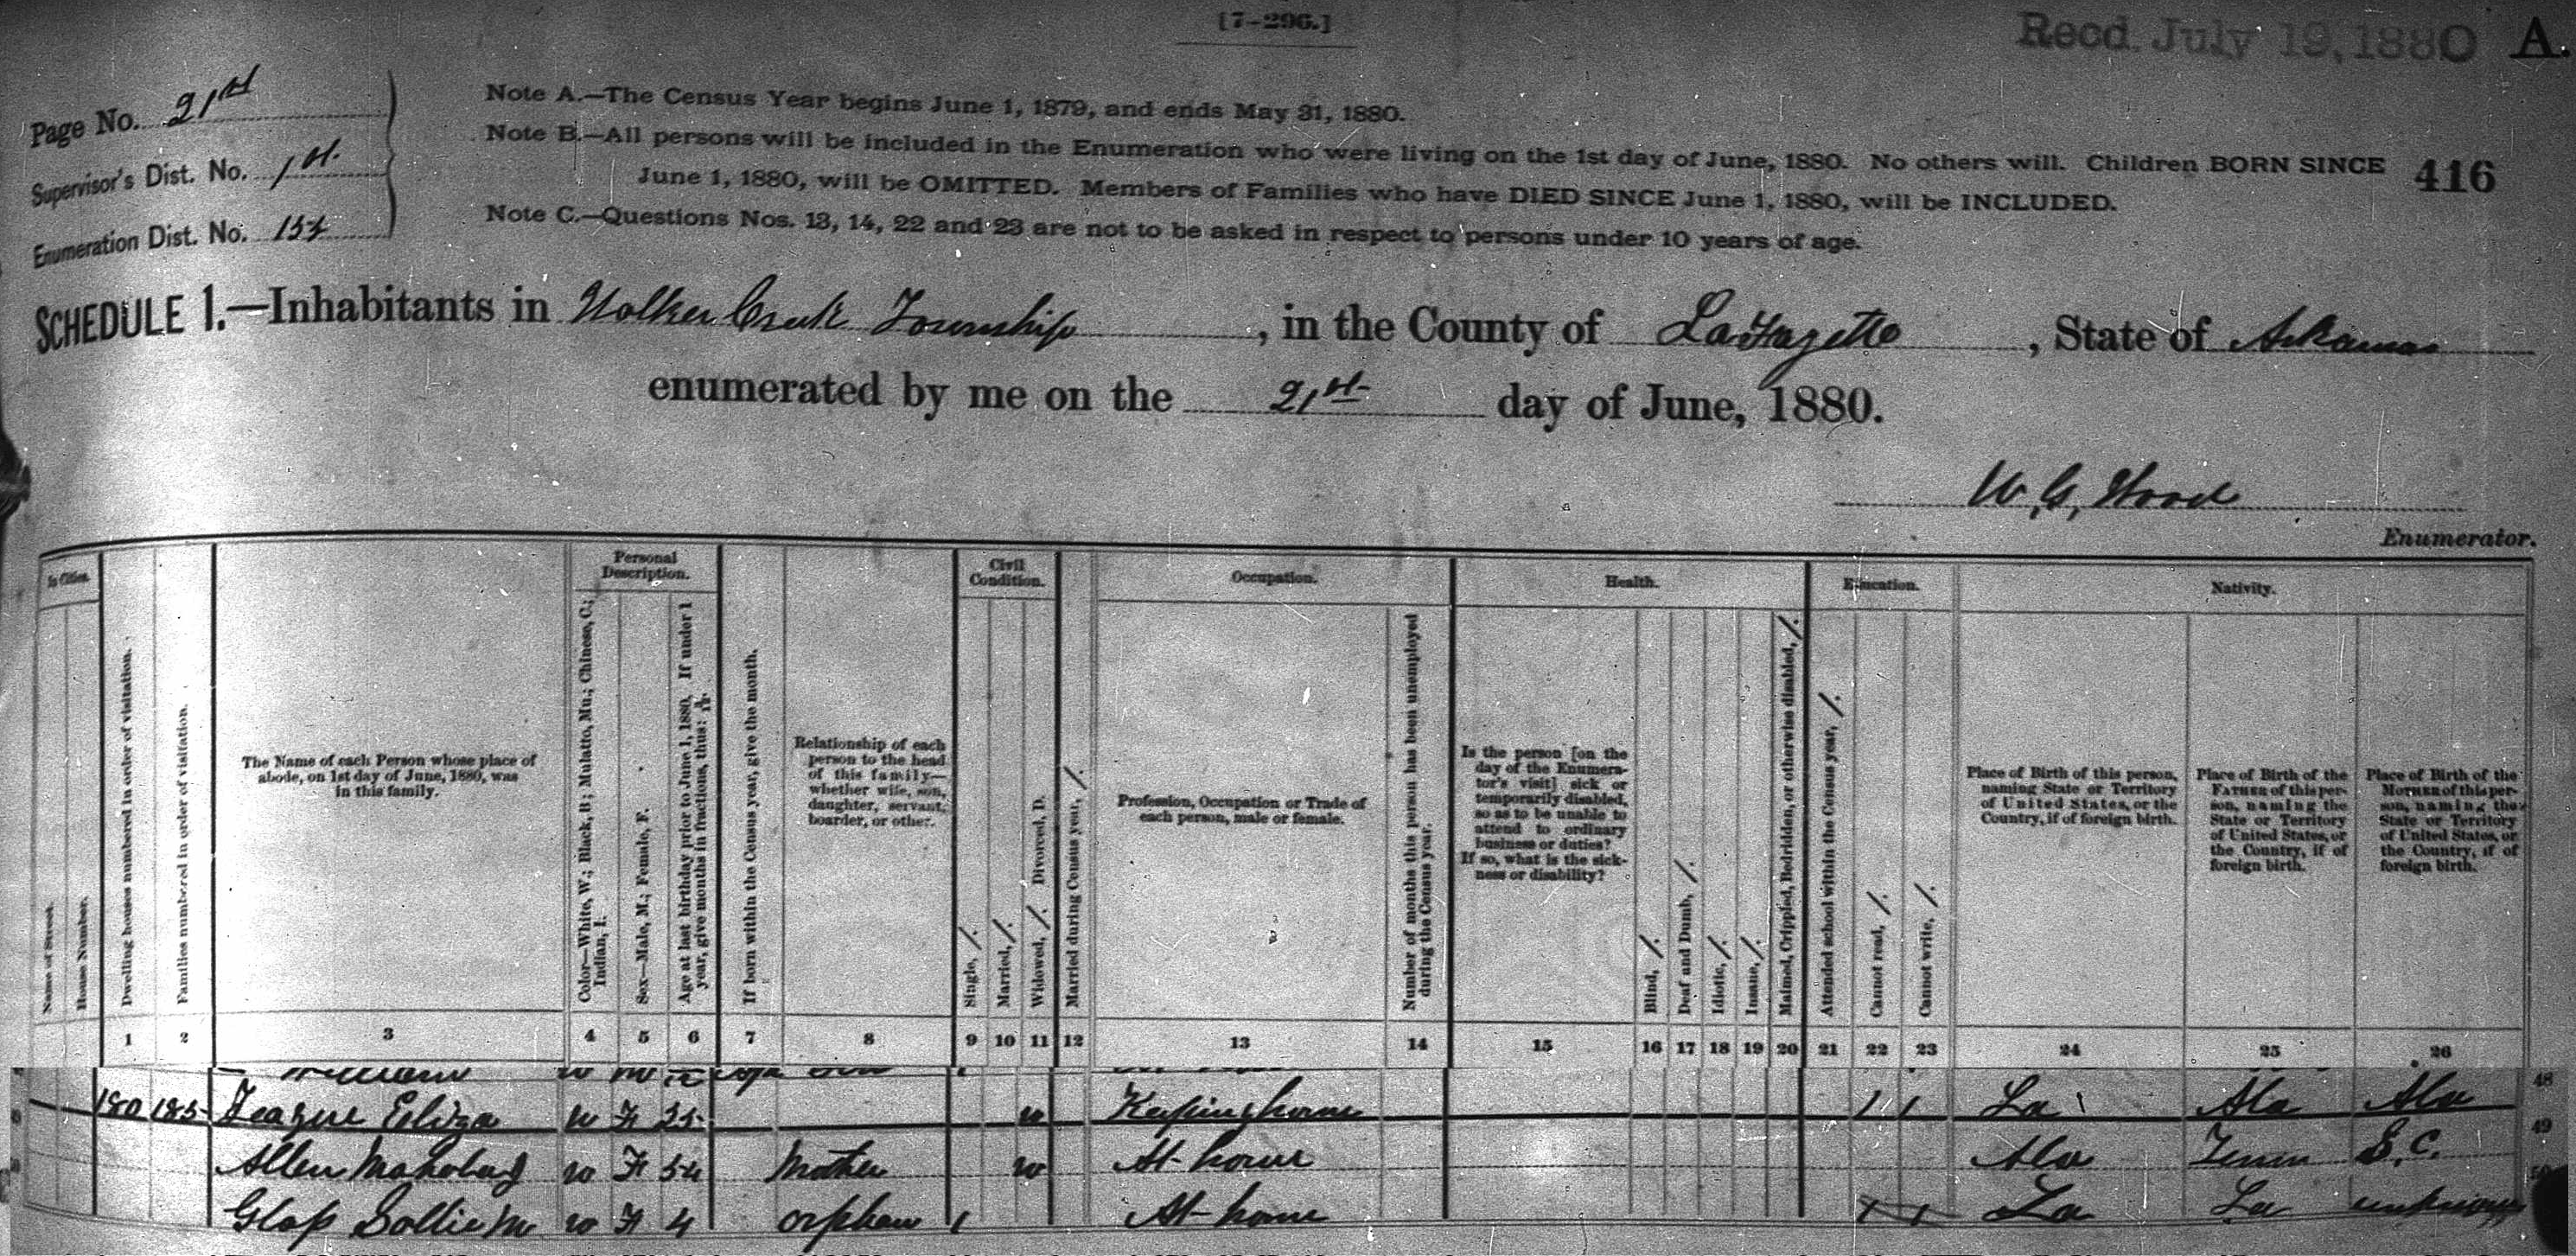 [7-296.]
Recd July 19, 1880 A.
Page No. 21st
Supervisor's Dist. No. 1st.
Enumeration Dist. No.
Note A.—The Census Year begins June 1, 1879, and ends May 31, 1880.
Note B.—All persons will be included in the Enumeration who were living on the 1st day of June, 1880. No others will. Children BORN SINCE
June 1, 1880, will be OMITTED. Members of Families who have DIED SINCE June 1, 1880, will be INCLUDED.
Note C.—Questions Nos. 13, 14, 22 and 23 are not to be asked in respect to persons under 10 years of age.
416
SCHEDULE 1.—Inhabitants in Walker Creek Township, in the County of LaFayette, State of Arkansas
enumerated by me on the 21st day of June, 1880.
W. G. Wood
Enumerator.
In Cities.
Name of Street.
House Number.
Dwelling houses numbered in order of visitation.
Families numbered in order of visitation.
The Name of each Person whose place of
abode, on 1st day of June, 1880, was
in this family.
Personal
Description.
Color—White, W.; Black, B; Mulatto, Mu.; Chinese, C.;
Indian, I.
Sex—Male, M.; Female, F.
Age at last birthday prior to June 1, 1880. If under 1
year, give months in fractions, thus:
If born within the Census year, give the month.
Relationship of each
person to the head
of this family—
whether wife, son,
daughter, servant,
boarder, or other.
Civil
Condition.
Single, /.
Married, /.
Widowed, /. Divorced, D.
Married during Census year, /.
Occupation.
Profession, Occupation or Trade of
each person, male or female.
Number of months this person has been unemployed
during the Census year.
Health.
Is the person [on the
day of the Enumera-
tor's visit] sick or
temporarily disabled,
so as to be unable to
attend to ordinary
business or duties?
If so, what is the sick-
ness or disability?
Blind, /.
Deaf and Dumb, /.
Idiotic, /.
Insane, /.
Maimed, Crippled, Bedridden, or otherwise disabled, /.
Education.
Attended school within the Census year, /.
Cannot read, /.
Cannot write, /.
Nativity.
Place of Birth of this person,
naming State or Territory
of United States, or the
Country, if of foreign birth.
Place of Birth of the
FATHER of this per-
son, naming the
State or Territory
of United States, or
the Country, if of
foreign birth.
Place of Birth of the
MOTHER of this per-
son, naming the
State or Territory
of United States, or
the Country, if of
foreign birth.
1 2 3 4 5 6 7 8 9 10 11 12 13 14 15 16 17 18 19 20 21 22 23 24 25 26
180 185 Teague Eliza W F 25 w Keeping house / / La Ala Ala 48
Allen W F 54 Mother w At home Ala Tenn S.C. 49
Glass Sallie M W F 4 orphan / At home / / La La unknown 50